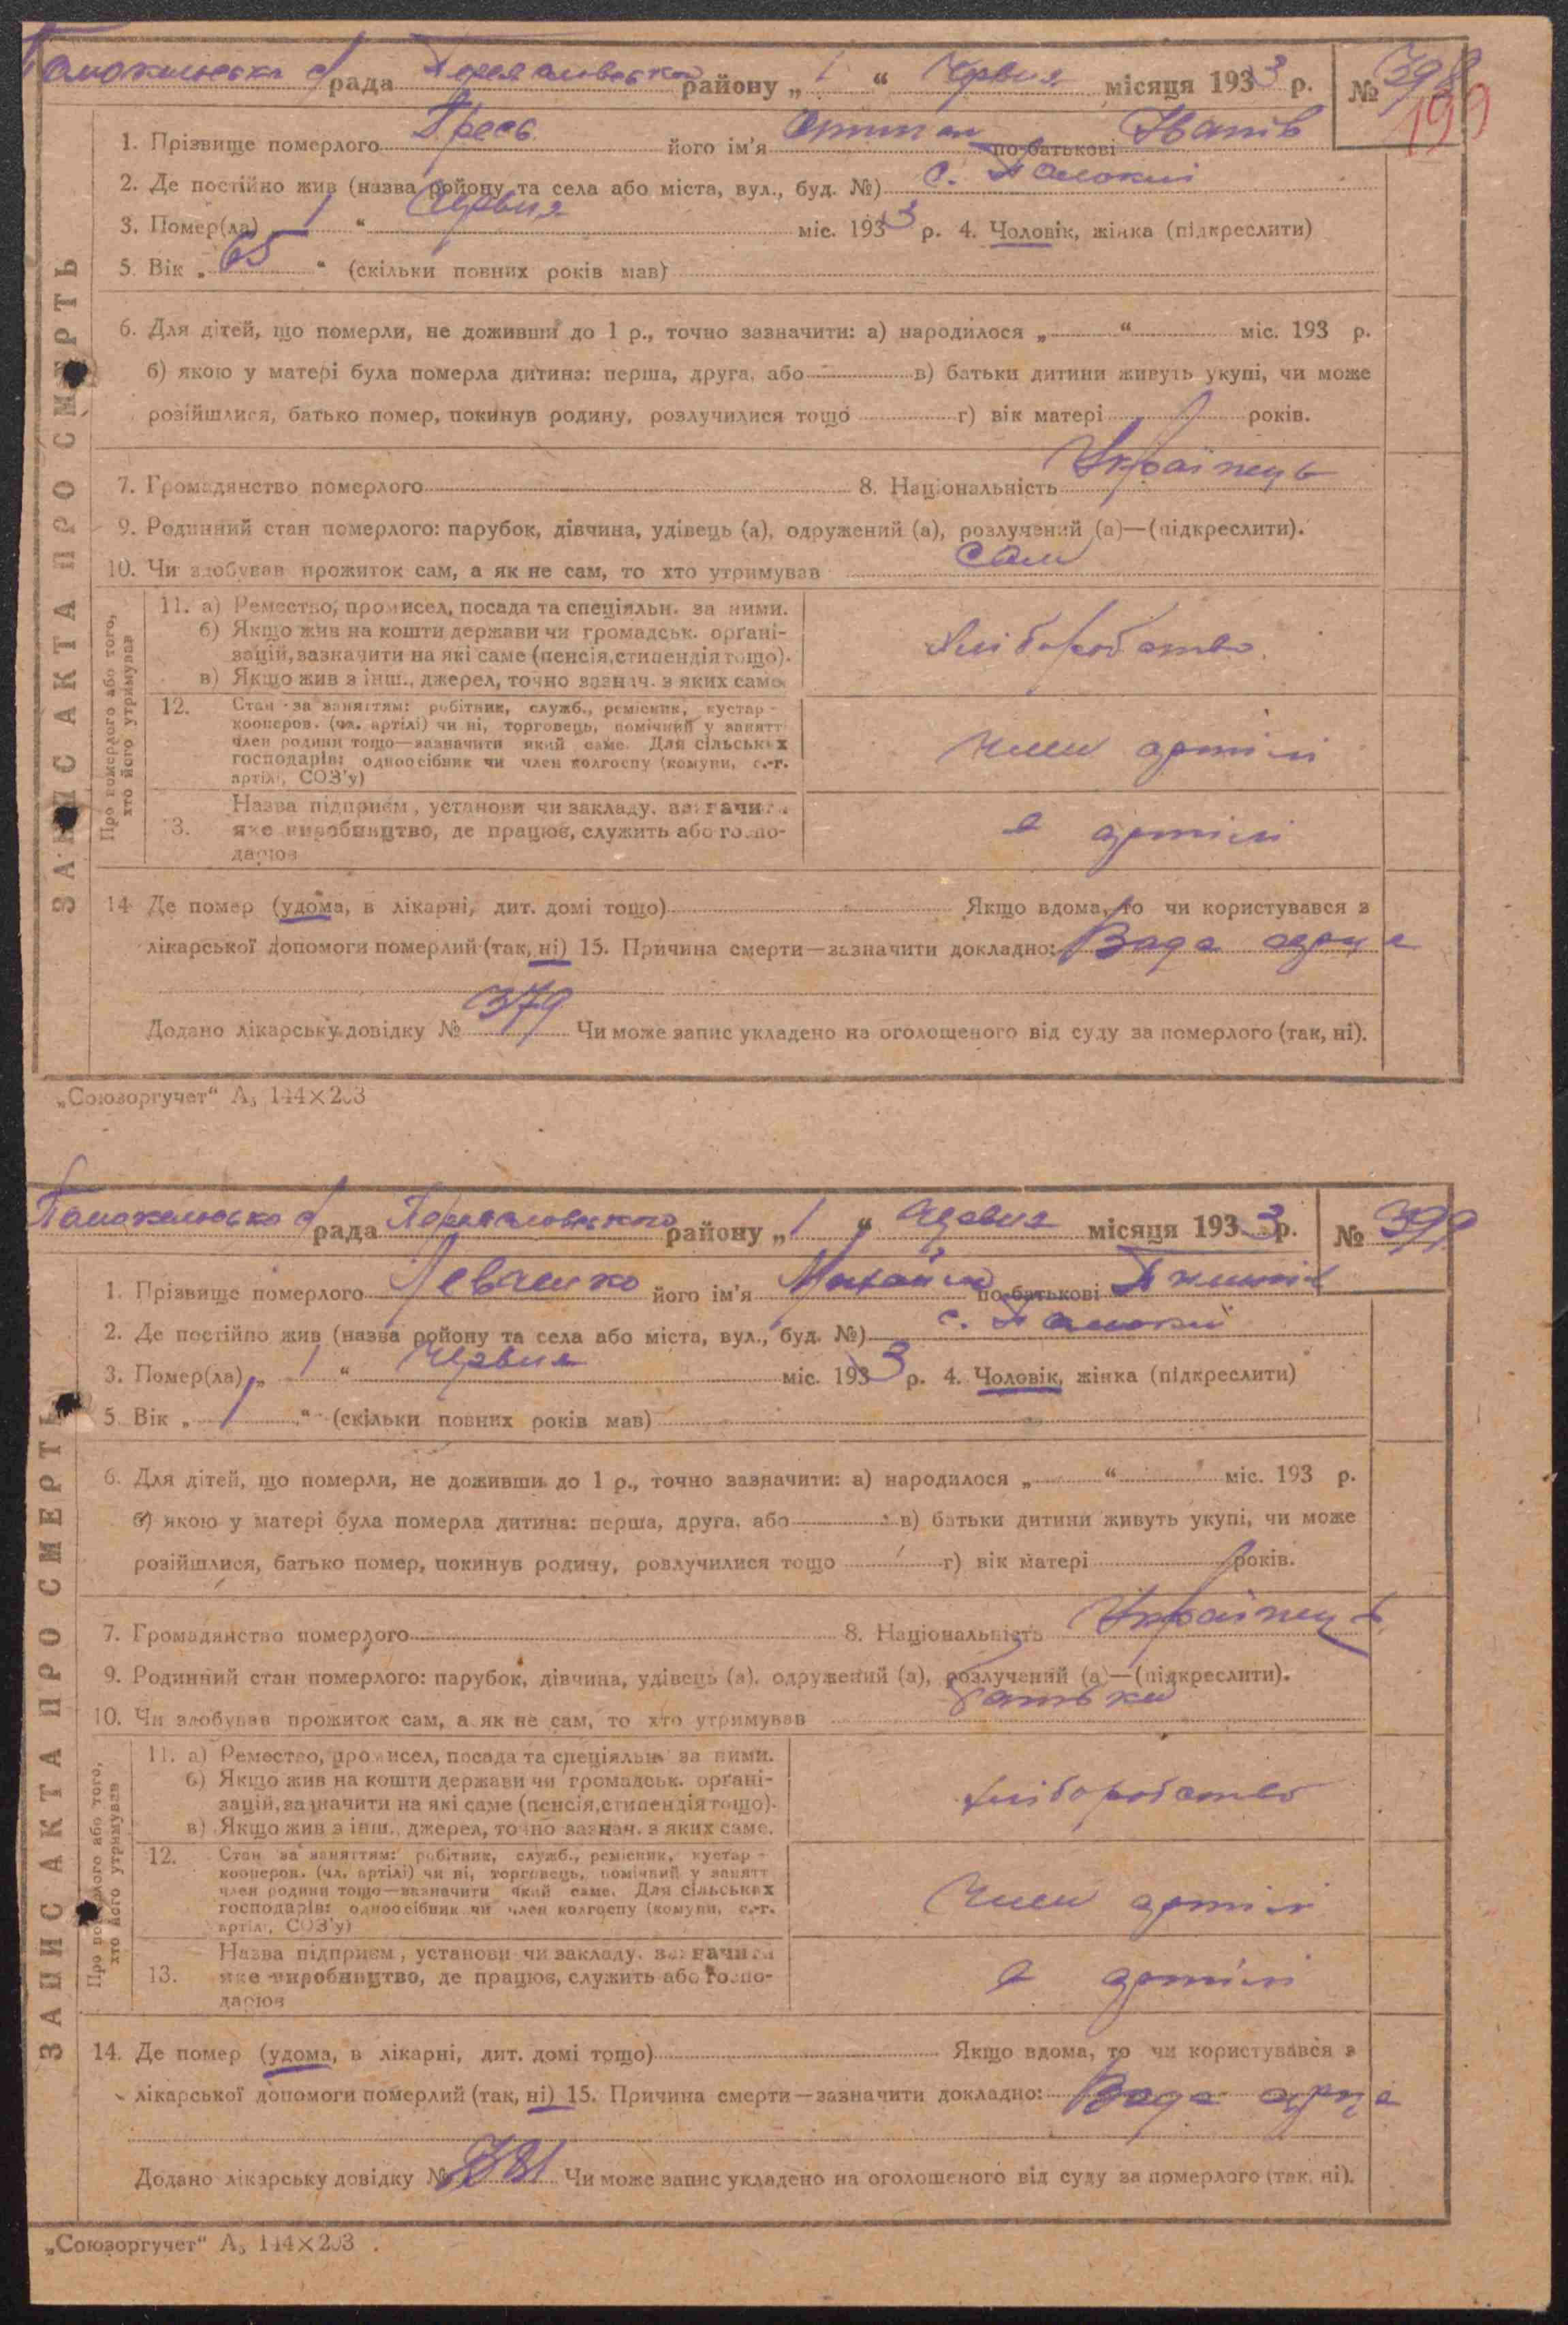 рада району „ 1 “ Червня місяця 1933 р. № 398
199
1. Прізвище померлого його ім'я по-батькові Іванів
2. Де постійно жив (назва ройону та села або міста, вул., буд. №) с.
3. Помер(ла) 1 “ Червня міс. 1933 р. 4. Чоловік, жінка (підкреслити)
5. Вік „ 65 “ (скільки повних років мав)
6. Для дітей, що померли, не доживши до 1 р., точно зазначити: а) народилося „ “ міс. 193 р.
б) якою у матері була померла дитина: перша, друга, або в) батьки дитини живуть укупі, чи може
розійшлися, батько помер, покинув родину, розлучилися тощо г) вік матері років.
7. Громадянство померлого 8. Національність Українець
9. Родинний стан померлого: парубок, дівчина, удівець (а), одружений (а), розлучений (а)—(підкреслити).
10. Чи здобував прожиток сам, а як не сам, то хто утримував сам
ЗАПИС АКТА ПРО СМЕРТЬ
Про померлого або того, хто його утримував
11. а) Ремество, промисел, посада та спеціяльн. за ними.
б) Якщо жив на кошти держави чи громадськ. орґані-
зацій, зазначити на які саме (пенсія, стипендія тощо).
в) Якщо жив з інш., джерел, точно зазнач. з яких саме
хліборобство
12. Стан за заняттям: робітник, служб., ремісник, кустар -
кооперов. (чл. артілі) чи ні, торговець, помічний у занятт
член родини тощо—зазначити який саме. Для сільських
господарів: одноосібник чи член колгоспу (комуни, с.-г.
артілі, СОЗ'у)
член артілі
13. Назва підприєм, установи чи закладу. зазначити
яке виробництво, де працює, служить або госпо-
дарює
в артілі
14 Де помер (удома, в лікарні, дит. домі тощо) Якщо вдома, то чи користувався з
лікарської допомоги померлий (так, ні) 15. Причина смерти—зазначити докладно: Вада серця
Додано лікарську довідку № 379 Чи може запис укладено на оголошеного від суду за померлого (так, ні).
„Союзоргучет“ А5 144×203
рада району „ 1 “ Червня місяця 1933 р. № 399
1. Прізвище померлого Левашко його ім'я Михайло по-батькові
2. Де постійно жив (назва ройону та села або міста, вул., буд. №) с.
3. Помер(ла) „ 1 “ Червня міс. 1933 р. 4. Чоловік, жінка (підкреслити)
5. Вік „ 1 “ (скільки повних років мав)
6. Для дітей, що померли, не доживши до 1 р., точно зазначити: а) народилося „ “ міс. 193 р.
б) якою у матері була померла дитина: перша, друга, або в) батьки дитини живуть укупі, чи може
розійшлися, батько помер, покинув родину, розлучилися тощо г) вік матері років.
7. Громадянство померлого 8. Національність Українець
9. Родинний стан померлого: парубок, дівчина, удівець (а), одружений (а), розлучений (а)—(підкреслити).
10. Чи здобував прожиток сам, а як не сам, то хто утримував батьки
ЗАПИС АКТА ПРО СМЕРТЬ
Про померлого або того, хто його утримував
11. а) Ремество, промисел, посада та спеціяльн за ними.
б) Якщо жив на кошти держави чи громадськ. орґані-
зацій, зазначити на які саме (пенсія, стипендія тощо).
в) Якщо жив з інш., джерел, точно зазнач. з яких саме.
хліборобство
12. Стан за заняттям: робітник, служб., ремісник, кустар -
кооперов. (чл. артілі) чи ні, торговець, помічний у занятт
член родини тощо—зазначити який саме. Для сільських
господарів: одноосібник чи член колгоспу (комуни, с.-г.
артілі, СОЗ'у)
член артілі
13. Назва підприєм, установи чи закладу. зазначити
яке виробництво, де працює, служить або госпо-
дарює
в артілі
14. Де помер (удома, в лікарні, дит. домі тощо) Якщо вдома, то чи користувався з
лікарської допомоги померлий (так, ні) 15. Причина смерти—зазначити докладно: Вада серця
Додано лікарську довідку № 381 Чи може запис укладено на оголошеного від суду за померлого (так, ні).
„Союзоргучет“ А5 144×203